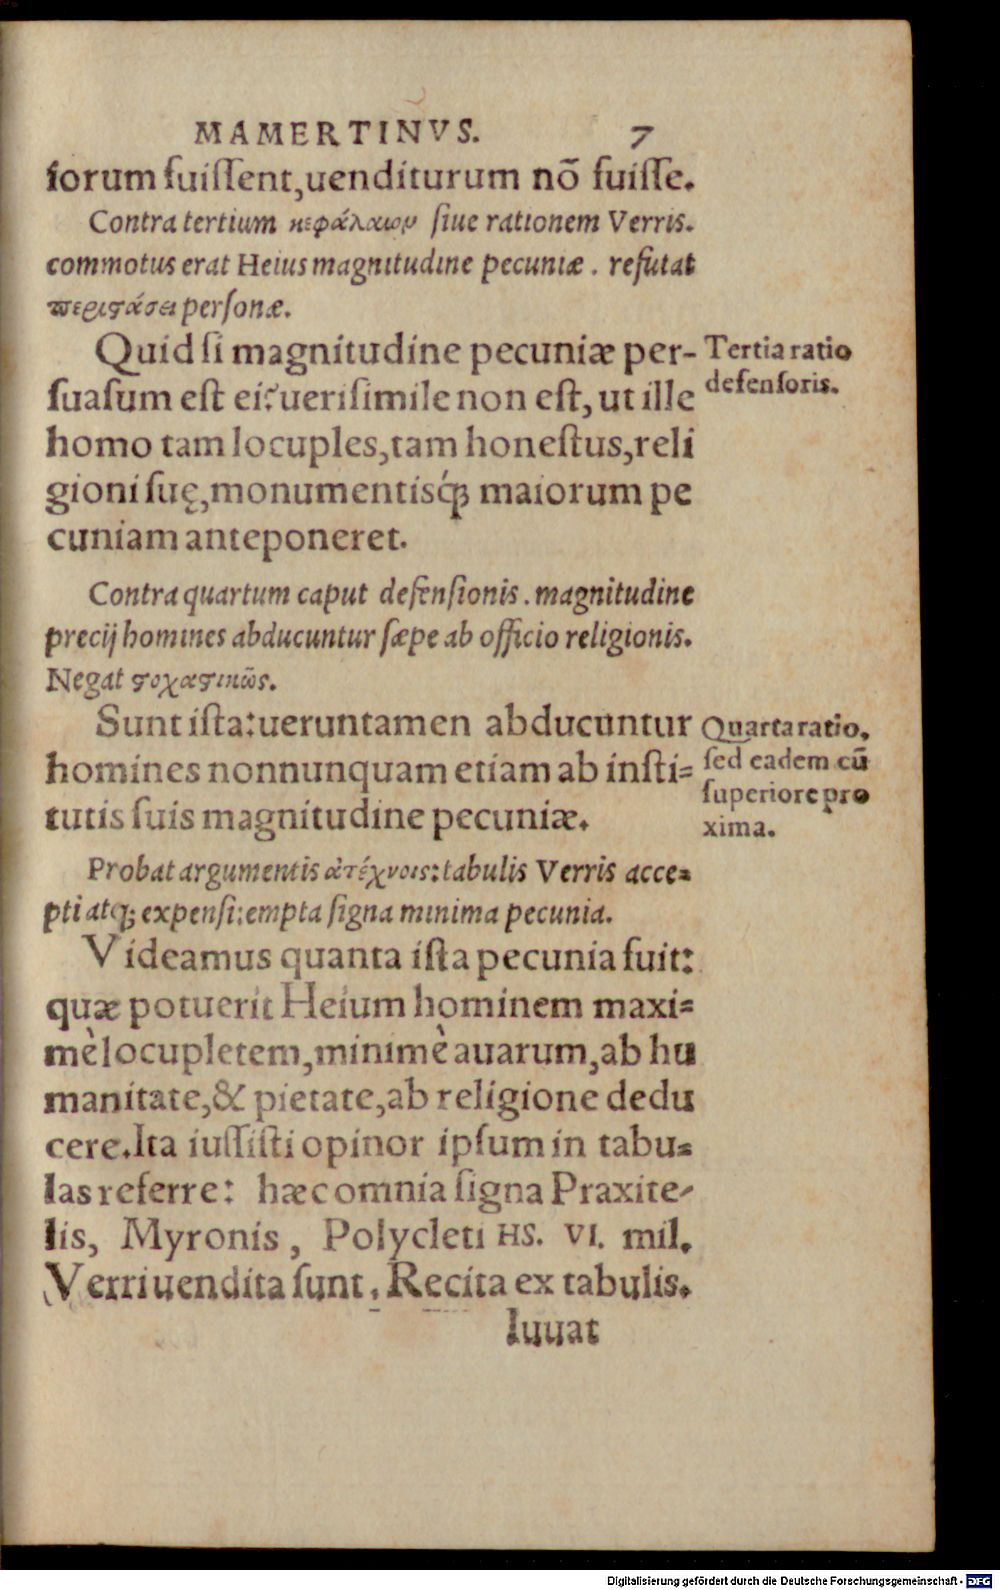 MAMERTINVS. 7
iorum fuiſſent,uenditurum nõ fuiſſe.
Contra tertium κεφάλαιον ſiue rationem Verris.
commotus erat Heius magnitudine pecuniæ . refutat
περιστάσει perſonæ.
Quid ſi magnitudine pecuniæ per-
ſuaſum eſt ei? ueriſimile non eſt, ut ille
homo tam locuples,tam honeſtus,reli
gioni ſuę,monumentisq́ꝫ maiorum pe
cuniam anteponeret.
Tertia ratio
defenſoris.
Contra quartum caput defenſionis . magnitudine
precij homines abducuntur ſæpe ab officio religionis.
Negat στοχαστικῶς.
Sunt iſta: ueruntamen abducuntur
homines nonnunquam etiam ab inſti=
tutis ſuis magnitudine pecuniæ.
Quarta ratio,
ſed eadem cũ
ſuperiore pro
xima.
Probat argumentis ἀτέχνοις: tabulis Verris acce=
pti atqꝫ expenſi: empta ſigna minima pecunia.
Videamus quanta iſta pecunia fuit:
quæ potuerit Heium hominem maxi=
mè locupletem,minimè auarum,ab hu
manitate,& pietate,ab religione dedu
cere.Ita iuſſiſti opinor ipſum in tabu=
las referre: hæc omnia ſigna Praxite-
lis, Myronis , Polycleti HS. VI. mil.
Verri uendita ſunt . Recita ex tabulis.
Iuuat
Digitalisierung gefördert durch die Deutsche Forschungsgemeinschaft - DFG